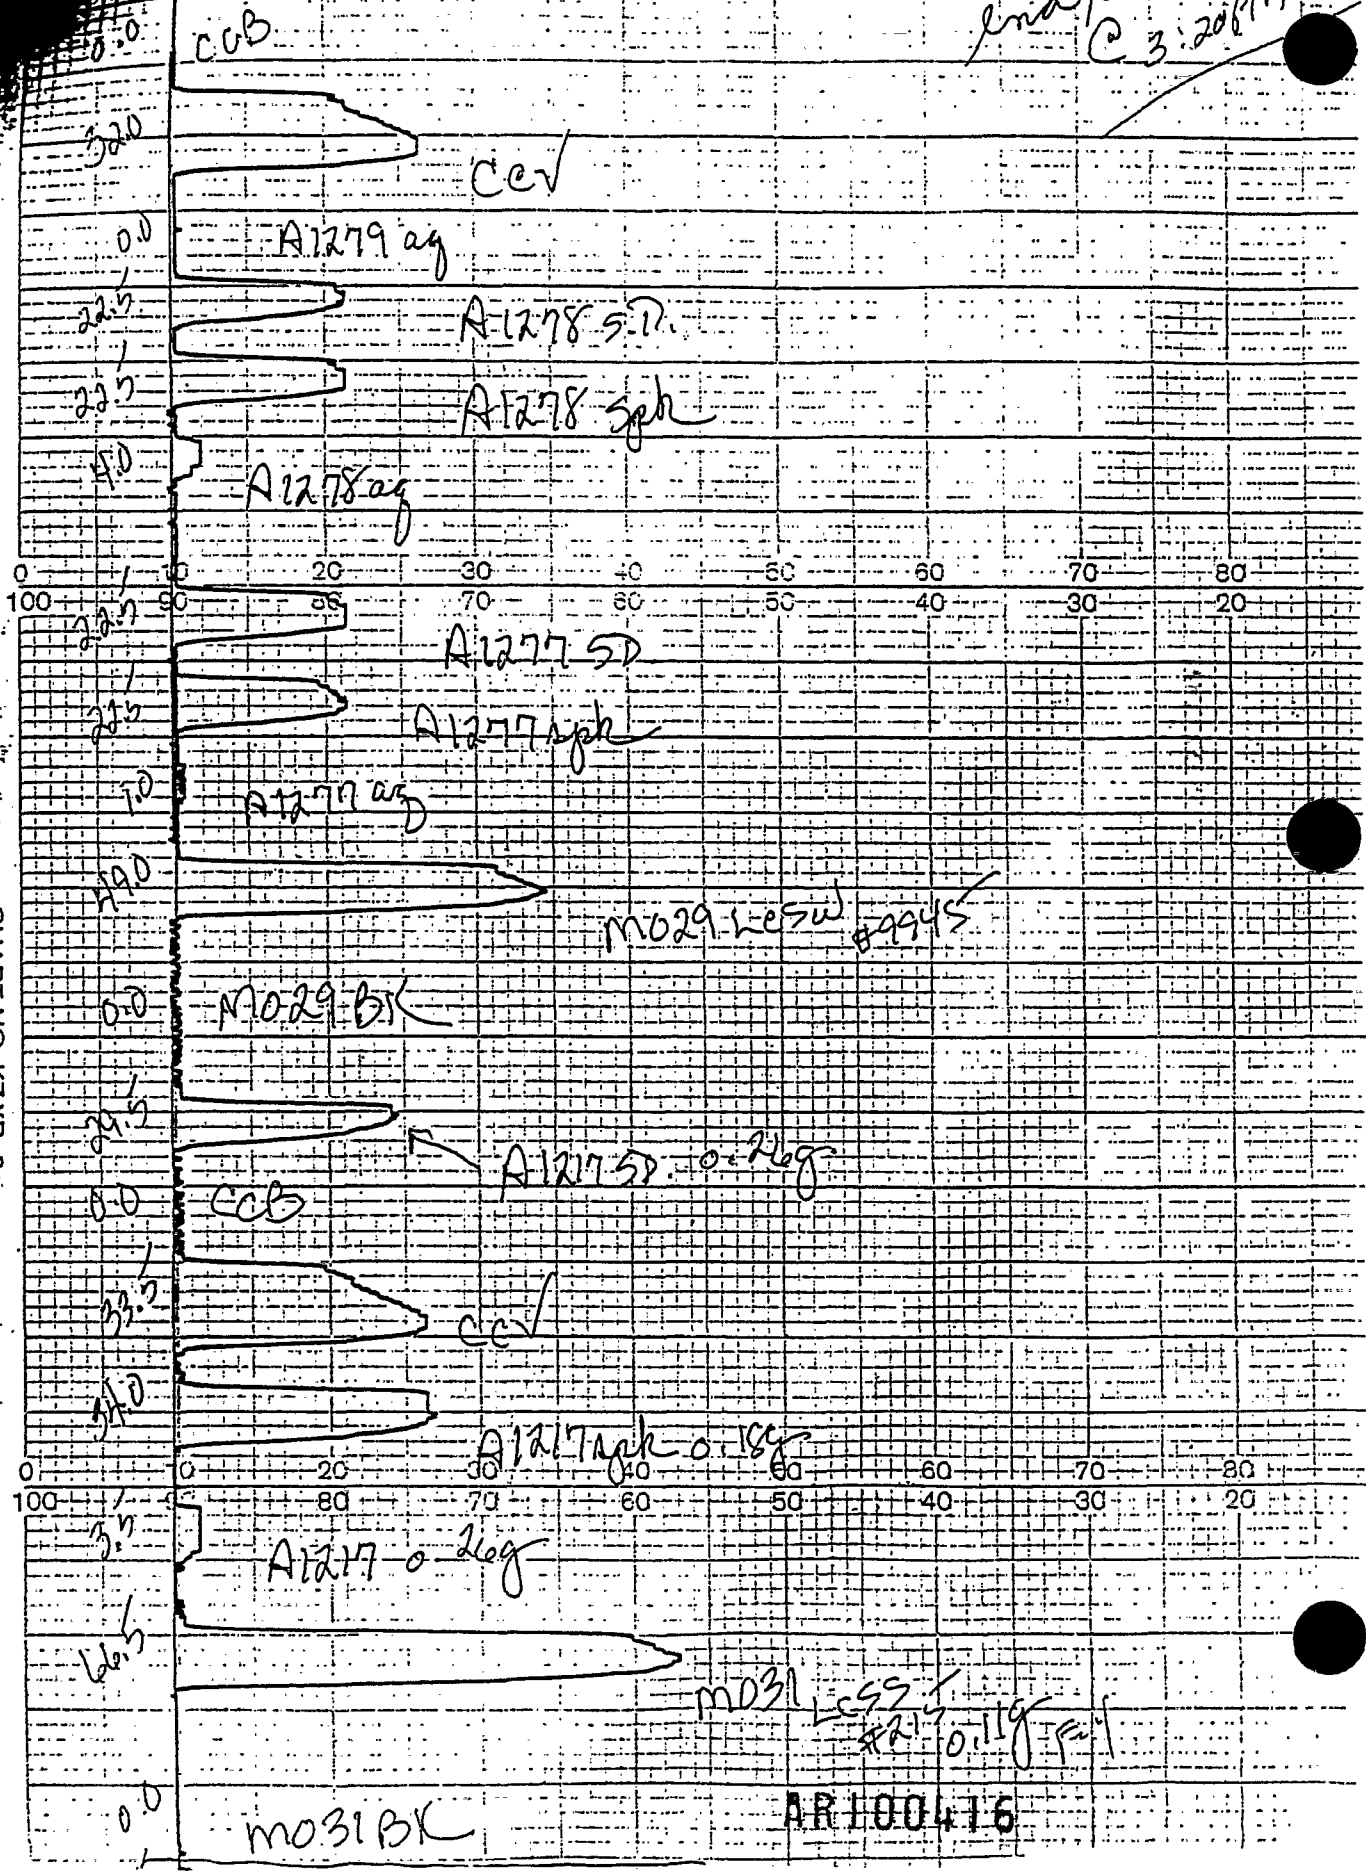 0.0 CCB
end
@ 3:20pm
32.0
CCV
0.0 A1279 aq
22.5
A1278 S.D.
22.5
A1278 spk
4.0
A1278 aq
0 10 20 30 40 50 60 70 80
100 90 80 70 60 50 40 30 20
22.5
A1277 SD
22.5
A1277 spk
1.0 A1277 aq
49.0
M029 LCSW #9945
0.0 M029 BK
29.5
A1217 SD. 0.26g
0.0 CCB
33.5
CCV
34.0
A1217 spk 0.18g
0 10 20 30 40 50 60 70 80
100 90 80 70 60 50 40 30 20
3.5
A1217 0.26g
66.5
M031 LCSS
#215 0.11g
AR100416
0.0 M031 BK